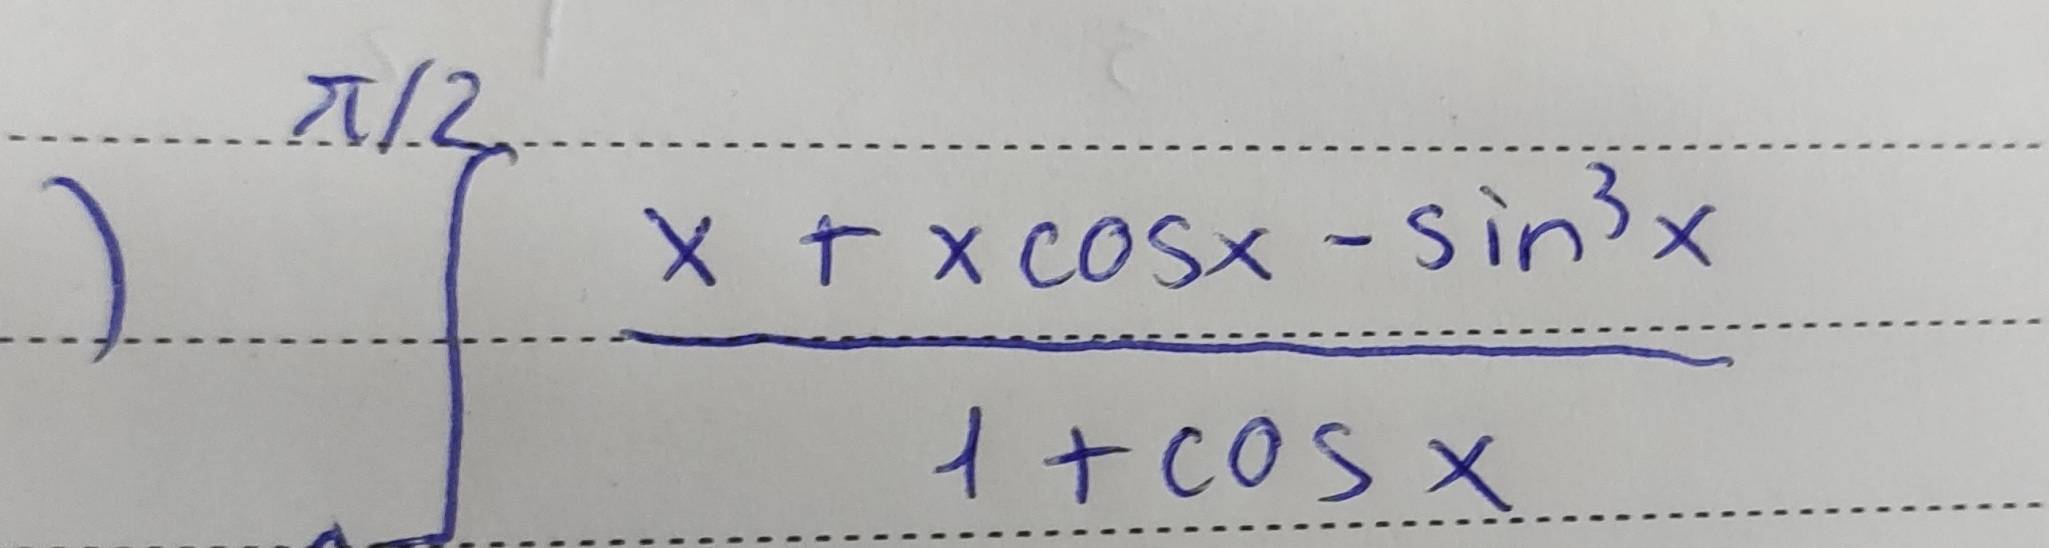 π/2
) ∫ x + x cosx - sin³x
1 + cos x